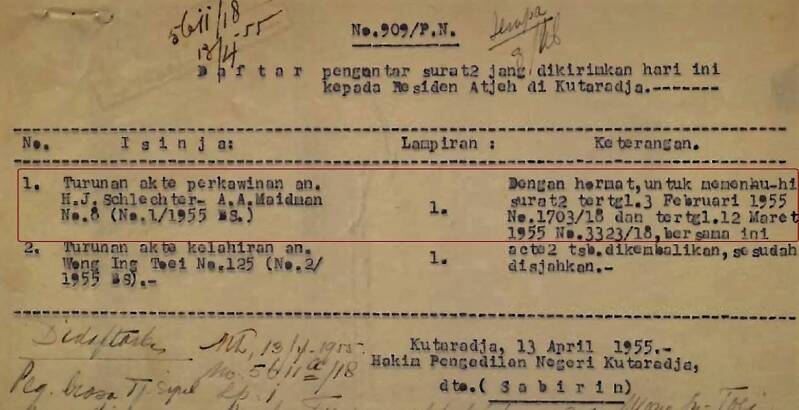 5611/18
13/4-55
No.909/P.N.
Daftar pengantar surat2 jang dikirimkan hari ini
kepada Residen Atjeh di Kutaradja.-------
No. Isinja: Lampiran : Keterangan.
1. Turunan akte perkawinan an.
H.J.Schlechter- A.A.Maidman
No.8 (No.1/1955 BS.)
1.
Dengan hormat,untuk memenhu-hi
surat2 tertgl.3 Februari 1955
No.1703/18 dan tertgl.12 Maret
1955 No.3323/18,bersama ini
acte2 tsb.dikembalikan,sesudah
disjahkan.-
2. Turunan akte kelahiran an.
Wong Ing Toei No.125 (No.2/
1955 BS).-
1.
Kutaradja, 13 April 1955.-
Hakim Pengadilan Negeri Kutaradja,
dto.( Sabirin)
Didaftarkan
13/4-1955
No.